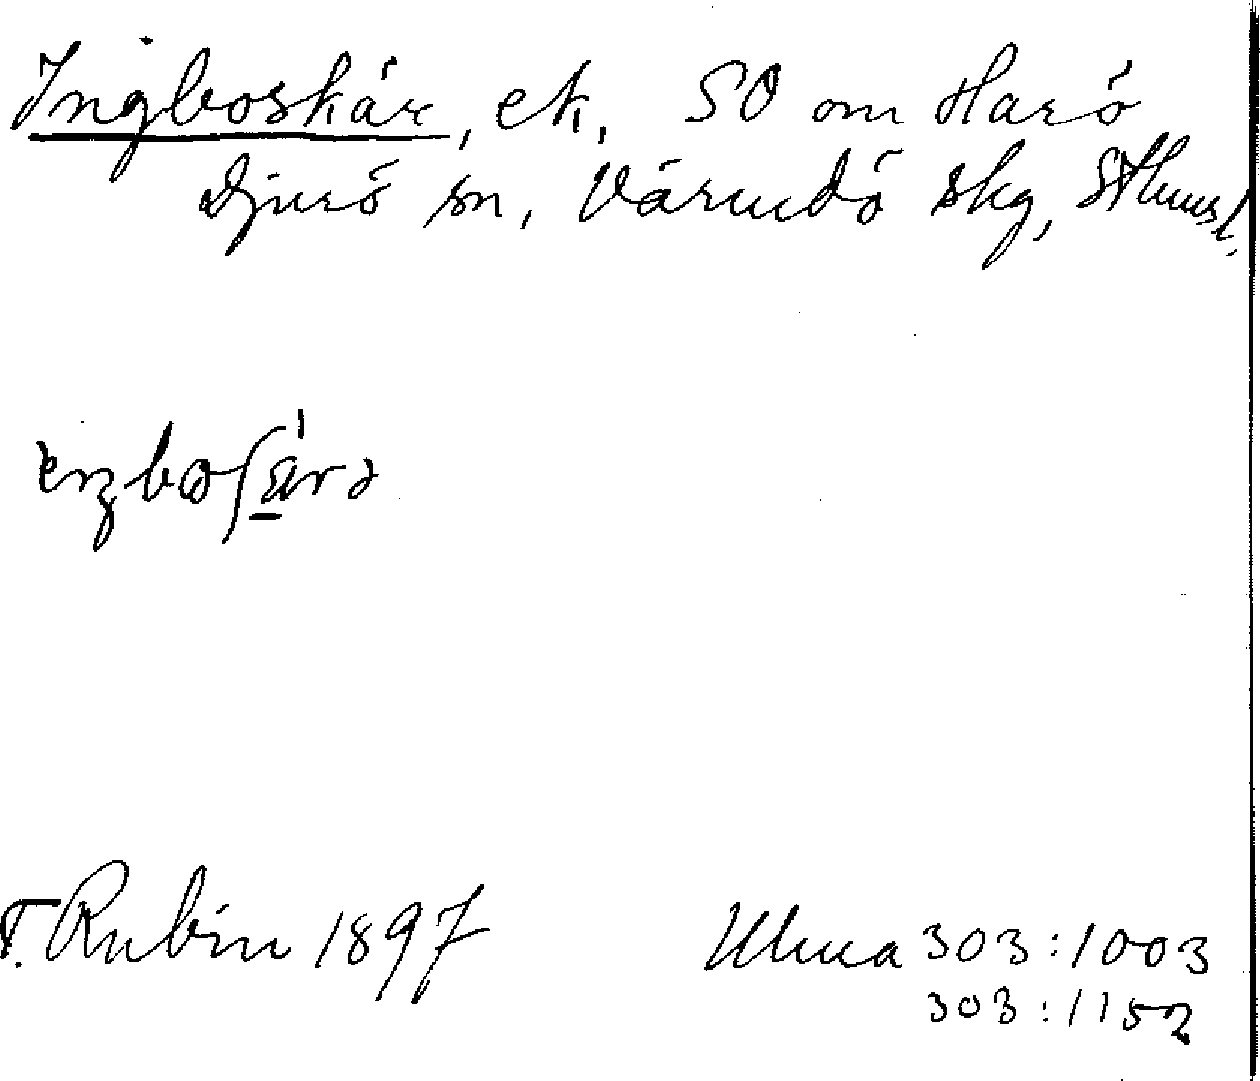 Ingboskär, ek, SO om Harö
Djurö sn, Värmdö skg, Sthmsl.
T. Rubin 1897
Ulma 303:1003
303:1152